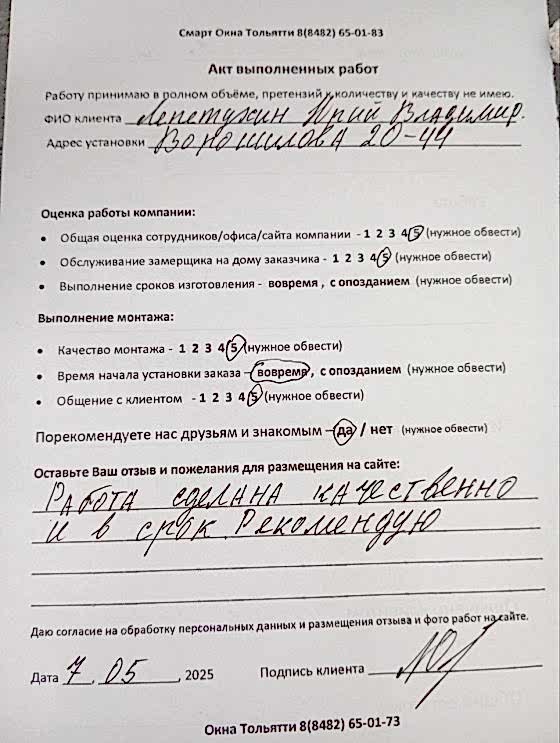 Смарт Окна Тольятти 8(8482) 65-01-83
Акт выполненных работ
Работу принимаю в полном объёме, претензий к количеству и качеству не имею.
ФИО клиента Лепетухин Юрий Владимир.
Адрес установки Ворошилова 20-44
Оценка работы компании:
• Общая оценка сотрудников/офиса/сайта компании - 1 2 3 4 5 (нужное обвести)
• Обслуживание замерщика на дому заказчика - 1 2 3 4 5 (нужное обвести)
• Выполнение сроков изготовления - вовремя , с опозданием (нужное обвести)
Выполнение монтажа:
• Качество монтажа - 1 2 3 4 5 (нужное обвести)
• Время начала установки заказа – вовремя , с опозданием (нужное обвести)
• Общение с клиентом - 1 2 3 4 5 (нужное обвести)
Порекомендуете нас друзьям и знакомым – да / нет (нужное обвести)
Оставьте Ваш отзыв и пожелания для размещения на сайте:
Работа сделана качественно
и в срок Рекомендую
Даю согласие на обработку персональных данных и размещения отзыва и фото работ на сайте.
Дата 7 . 05 , 2025 Подпись клиента
Окна Тольятти 8(8482) 65-01-73